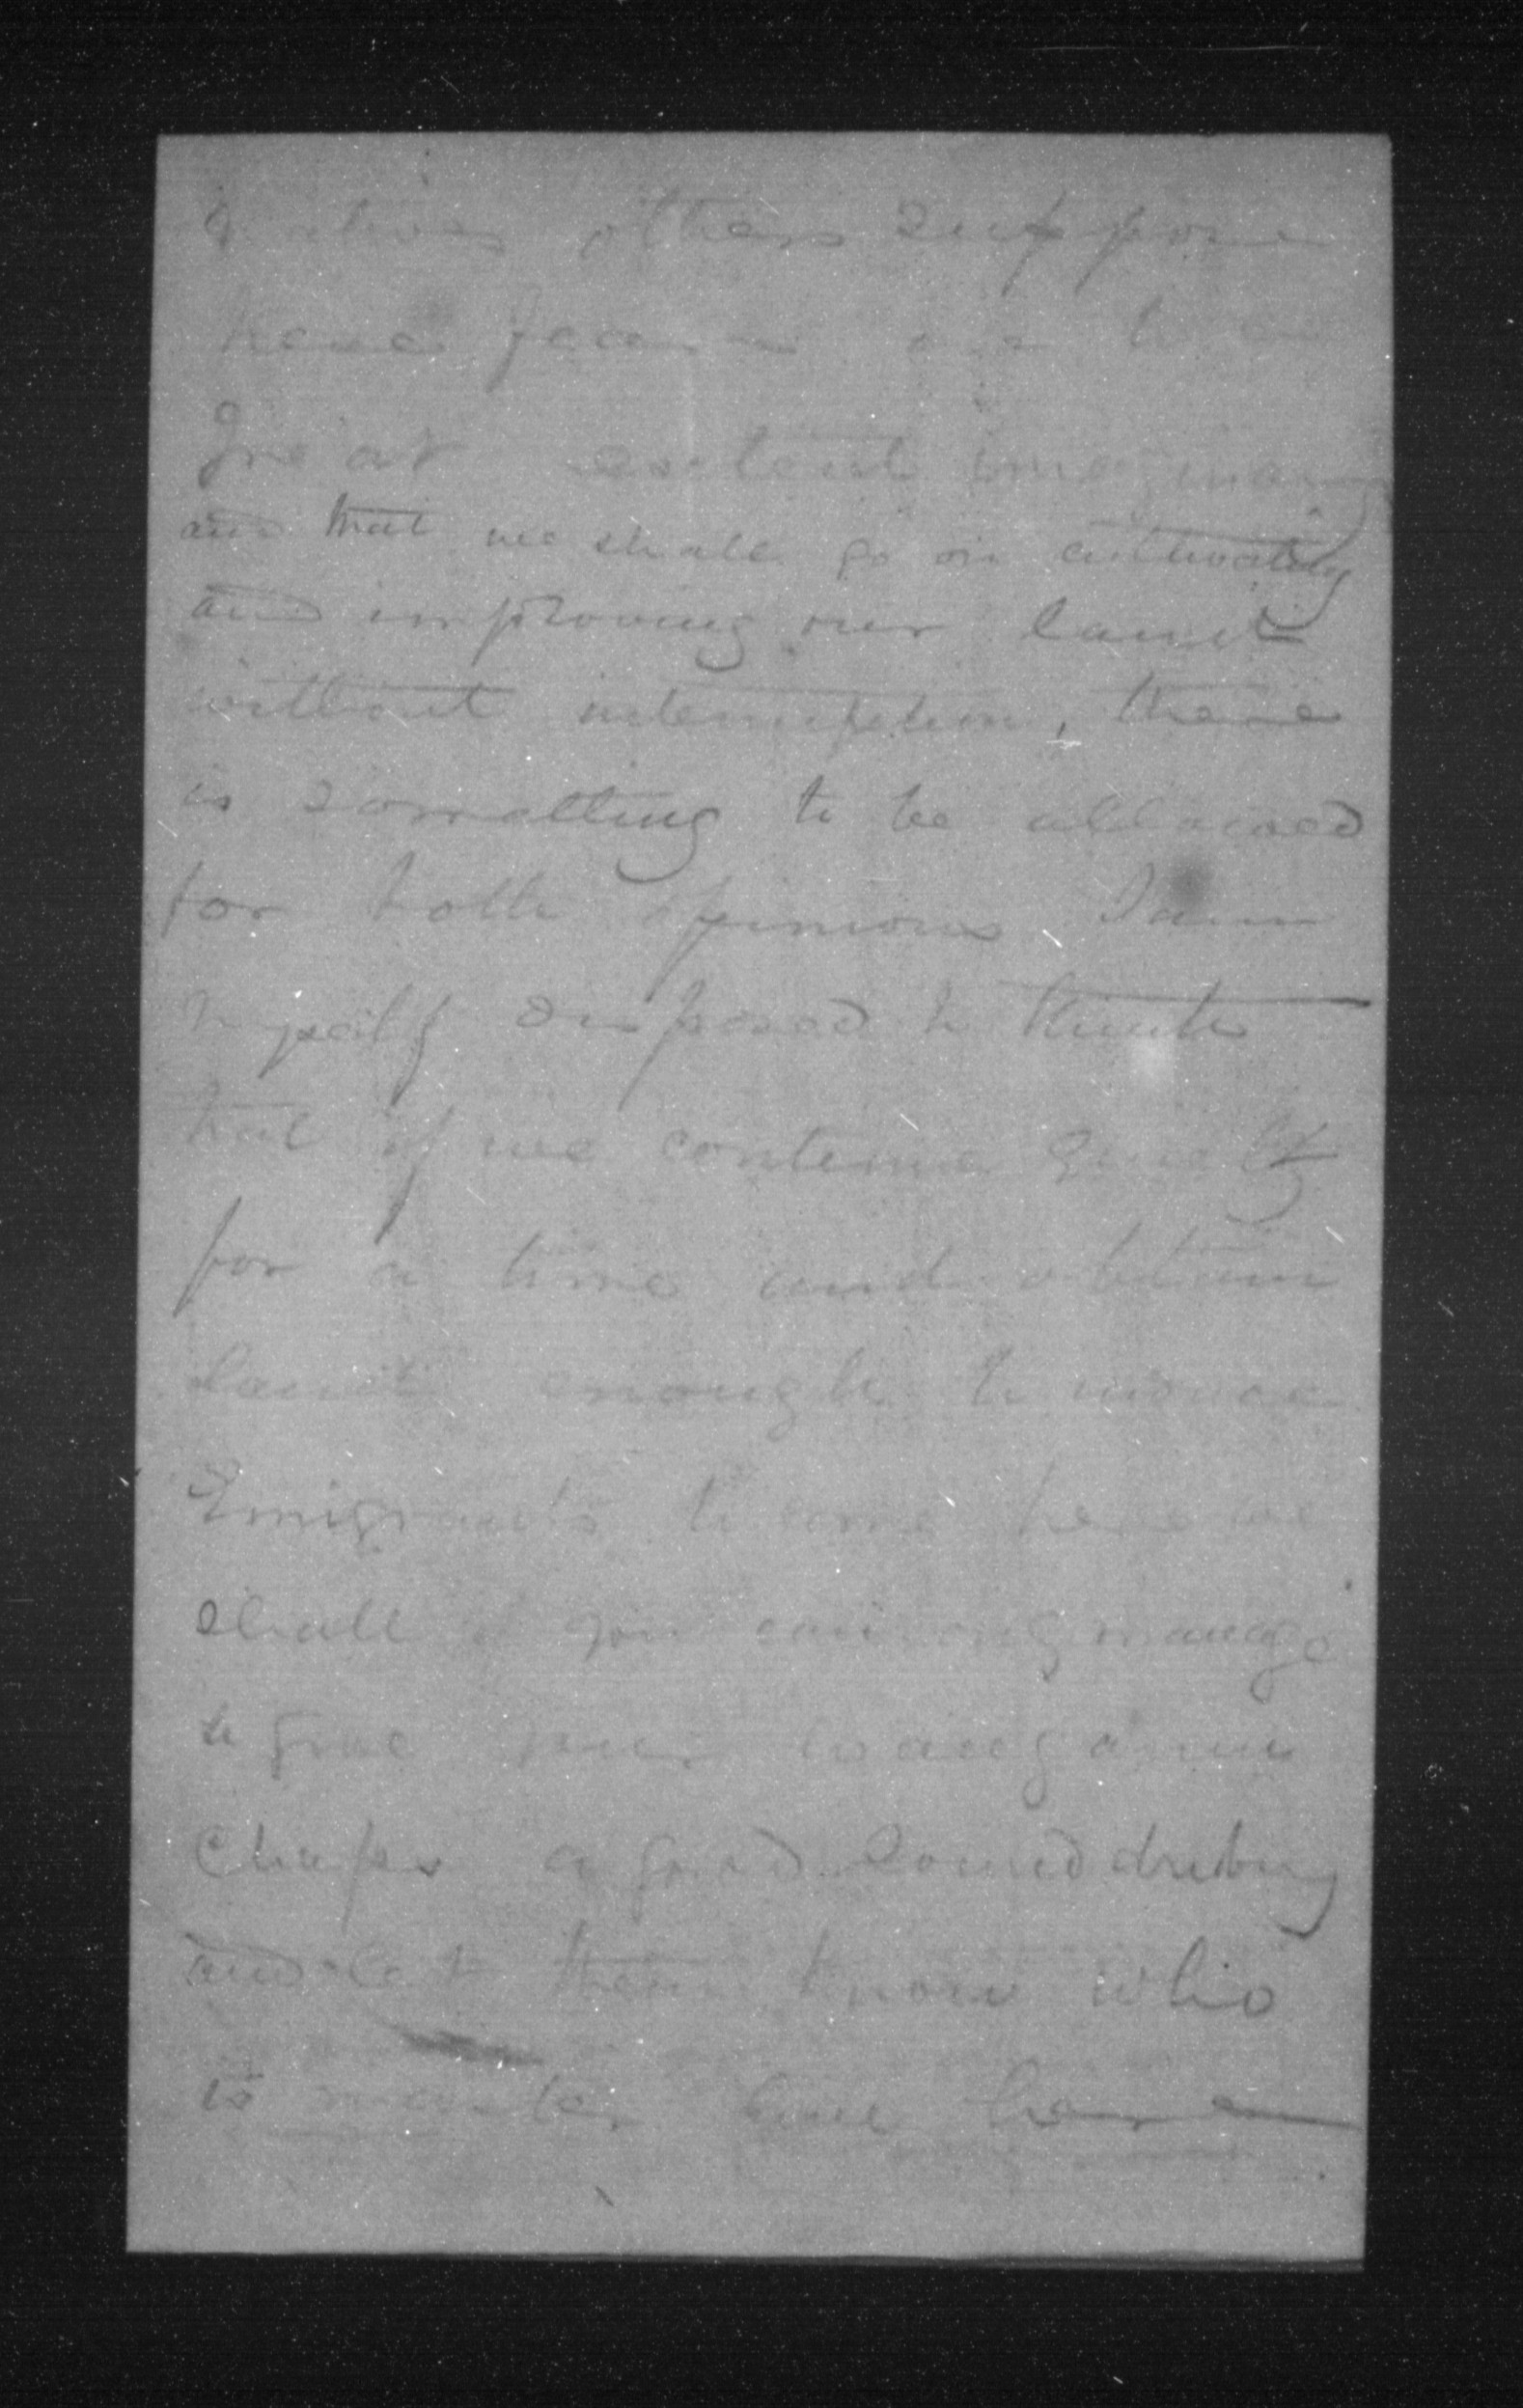 natives others suppose
these fears are to a
great extent imaginary
and that we shall go on cultivating
and improving our land
without interruption, there
is something to be allowed
for both opinions I am
myself disposed to think
that if we continue quietly
for a time and obtain
land enough to induce
Emigrants to come here we
shall if you can only manage
to give your Wanganui
Chaps a good sound drubing
and let them know who
is master live here